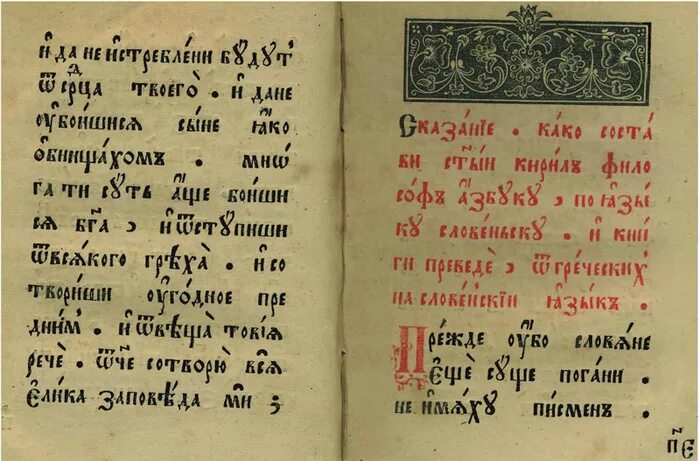 и҆ да не и҆стреблени бꙋ́дꙋтъ
ѿ се́рⷣца твоегѡ̀ . и҆ да не
ᲂу҆бои́шисѧ сы́не ꙗ҆́кѡ
ѡ҆бнища́хомъ . мнѡ́
га ти сꙋ́ть а҆́ще бои́ши
сѧ бг҃а , и҆ ѿстꙋ́пиши
ѿ всѧ́кого грѣха̀ . и҆ со
твори́ши ᲂу҆го́дное пре
д̾ ни́мъ . и҆ ѿвѣща̀ то́вїѧ
речѐ . ѿ҃че сотворю̀ всѧ̀
є҆ли́ка заповѣ́да мѝ ;
Сказа́нїе . ка́ко соста́
ви ст҃ы́й кири́лъ фило
со́фъ а҆́збꙋкꙋ , по ꙗ҆зы́
кꙋ слове́ньскꙋ . и҆ кни́
ги преведѐ , ѿ гре́ческихъ
на слове́нскїй ꙗ҆зы́къ .
Пре́жде ᲂу҆́бо слова́не
є҆щѐ сꙋ́ще пога́ни .
не и҆мѧ́хꙋ пи́сменъ .
п҃є